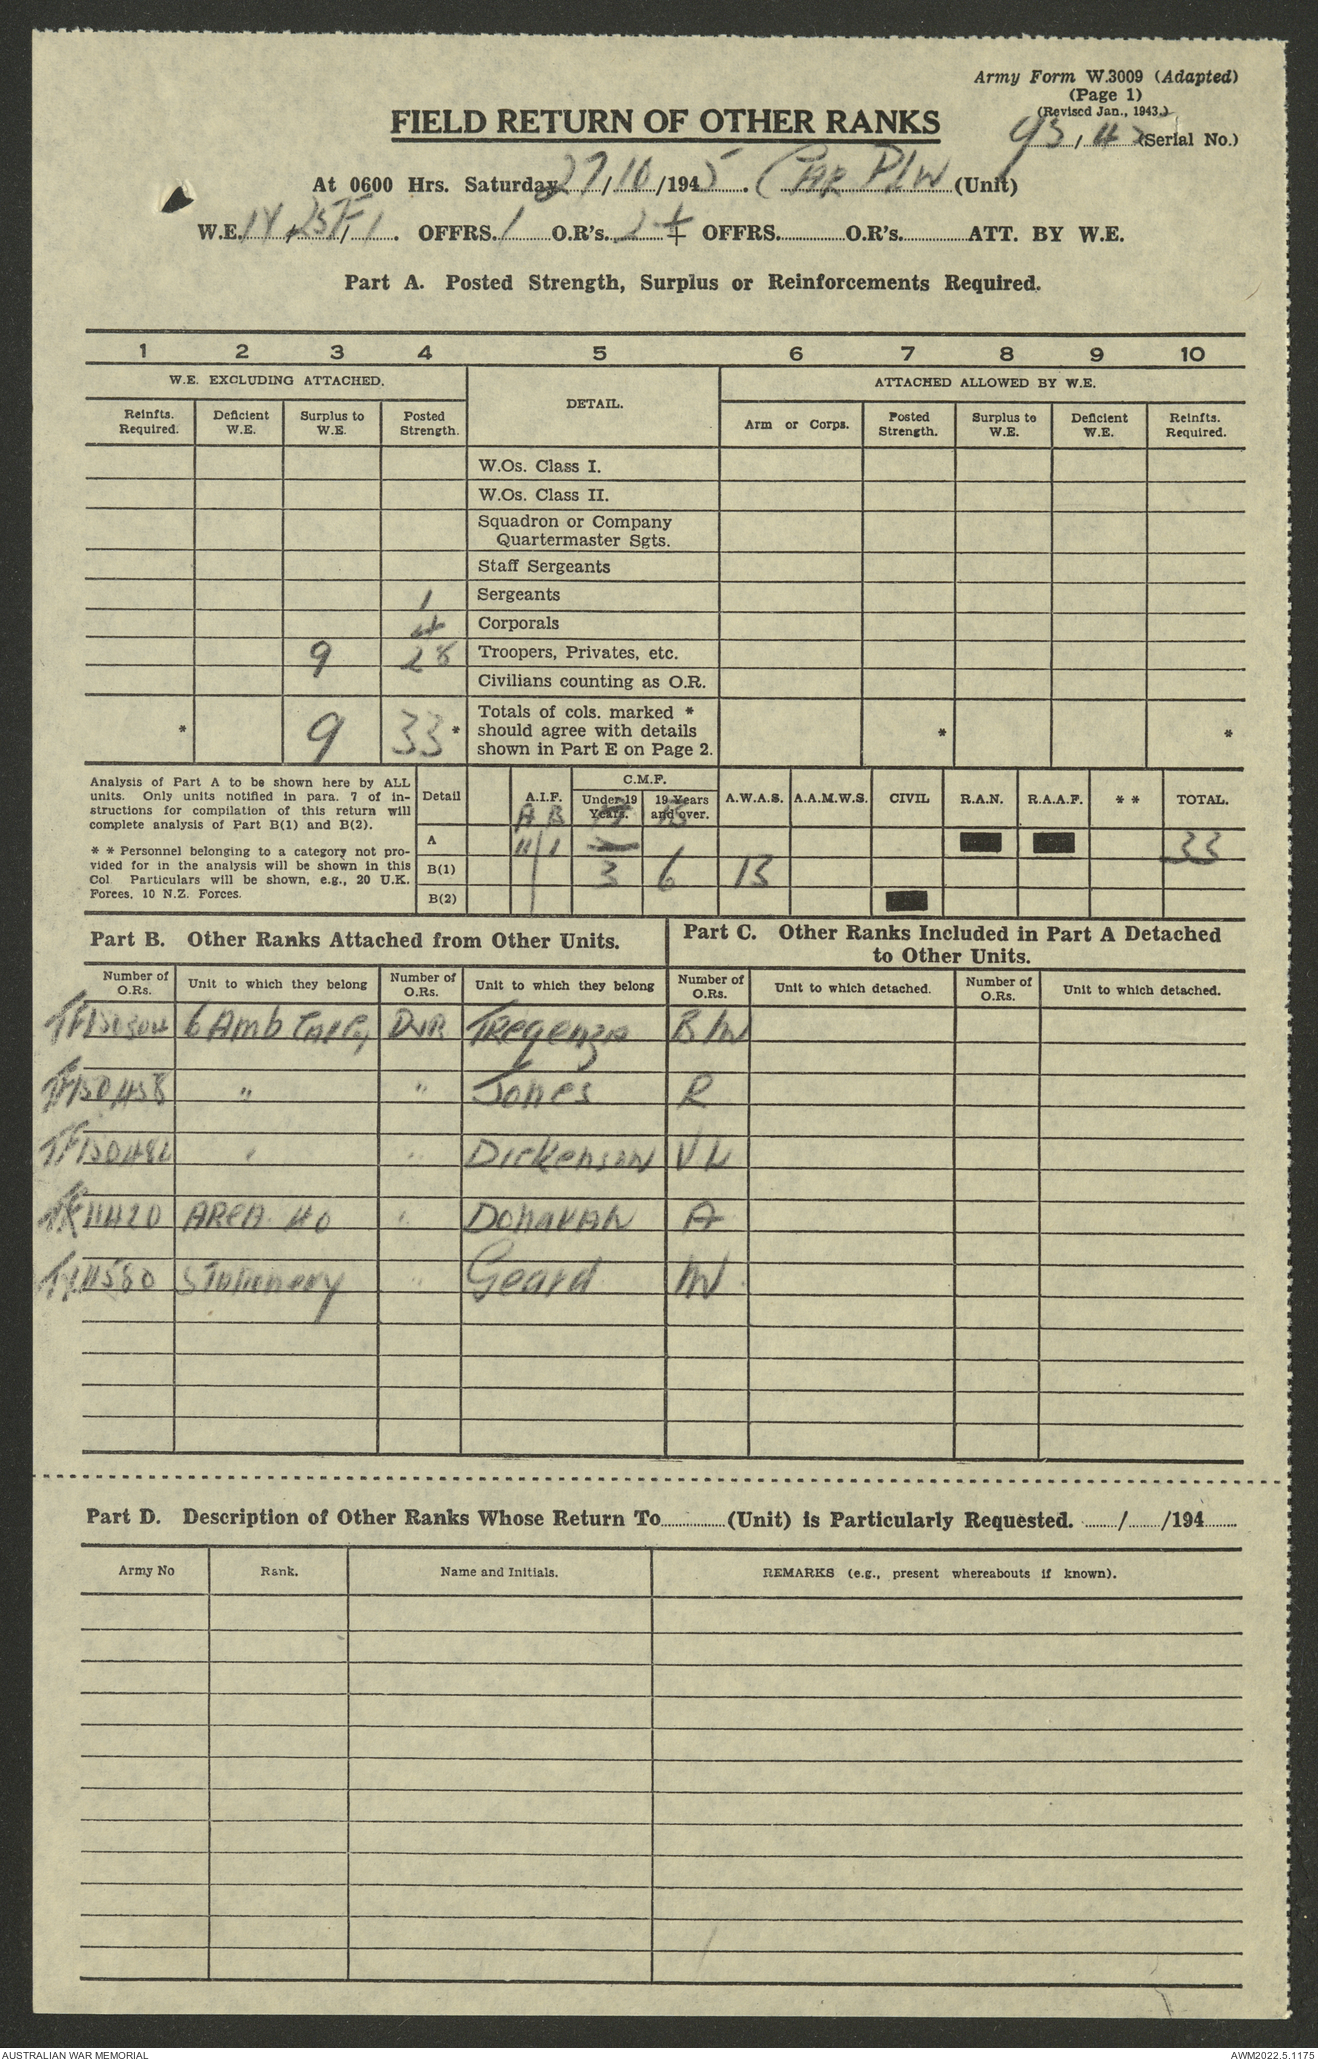 Army Form W.3009 (Adapted)
(Page 1)
(Revised Jan., 1943.)
FIELD RETURN OF OTHER RANKS
93/42 (Serial No.)
At 0600 Hrs. Saturday 27/10/1945. Car Plw (Unit)
W.E. OFFRS. 1 O.R's. 24 + OFFRS. O.R's. ATT. BY W.E.
Part A. Posted Strength, Surplus or Reinforcements Required.
1 2 3 4 5 6 7 8 9 10
W.E. EXCLUDING ATTACHED. DETAIL. ATTACHED ALLOWED BY W.E.
Reinfts. Required. Deficient W.E. Surplus to W.E. Posted Strength. Arm or Corps. Posted Strength. Surplus to W.E. Deficient W.E. Reinfts. Required.
W.Os. Class I.
W.Os. Class II.
Squadron or Company
Quartermaster Sgts.
Staff Sergeants
1 Sergeants
4 Corporals
9 28 Troopers, Privates, etc.
Civilians counting as O.R.
* 9 33 * Totals of cols. marked * should agree with details shown in Part E on Page 2. * *
Analysis of Part A to be shown here by ALL
units. Only units notified in para. 7 of in-
structions for compilation of this return will
complete analysis of Part B(1) and B(2).
* * Personnel belonging to a category not pro-
vided for in the analysis will be shown in this
Col Particulars will be shown, e.g., 20 U.K.
Forces, 10 N.Z. Forces.
C.M.F.
Detail A.I.F. Under 19 Years. 19 Years and over. A.W.A.S. A.A.M.W.S. CIVIL R.A.N. R.A.A.F. * * TOTAL.
A B
A 11 1 33
B(1) 3 6 13
B(2)
Part B. Other Ranks Attached from Other Units.
Part C. Other Ranks Included in Part A Detached
to Other Units.
Number of O.Rs. Unit to which they belong Number of O.Rs. Unit to which they belong Number of O.Rs. Unit to which detached. Number of O.Rs. Unit to which detached.
TF150304 6 Amb Car Co, Dvr Tregenza B M
TF150458 " " Jones R
" " Dickenson V L
Area 40 " Donavan A
Stationery " Geard M
Part D. Description of Other Ranks Whose Return To (Unit) is Particularly Requested. / /194
Army No Rank. Name and Initials. REMARKS (e.g., present whereabouts if known).
AUSTRALIAN WAR MEMORIAL
AWM2022.5.1175